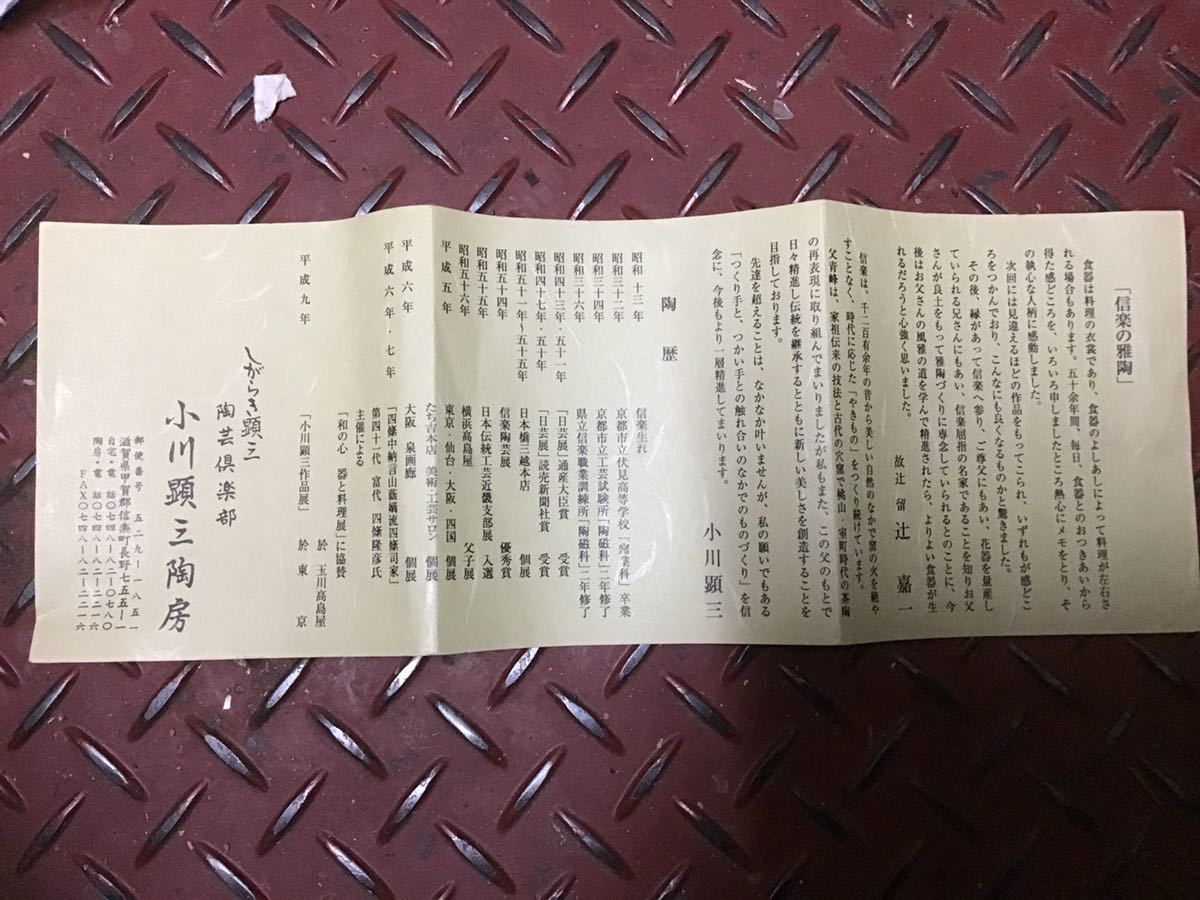 「信楽の雅陶」
食器は料理の衣裳であり、食器のよしあしによって料理が左右さ
れる場合もあります。五十余年間、毎日、食器とのおつきあいから
得た感どころを、いろいろ申しましたところ熱心にメモをとり、そ
の執心な人柄に感動しました。
次回には見違えるほどの作品をもってこられ、いずれもが感どこ
ろをつかんでおり、こんなにも良くなるものかと驚きました。
その後、縁があって信楽へ参り、ご尊父にもあい、花器を量産し
ていられる兄さんにもあい、信楽屈指の名家であることを知りお父
さんが良土をもって雅陶づくりに専念していられるとのことに、今
後はお父さんの風雅の道を学んで精進されたら、よりよい食器が生
れるだろうと心強く思いました。
故辻留 辻 嘉一
信楽は、千二百有余年の昔から美しい自然のなかで窯の火を絶や
すことなく、時代に応じた「やきもの」をつくり続けています。
父青峰は、家祖伝来の技法と古代の穴窯で桃山・室町時代の茶陶
の再表現に取り組んでまいりましたが私もまた、この父のもとで
日々精進し伝統を継承するとともに新しい美しさを創造することを
目指しております。
先達を超えることは、なかなか叶いませんが、私の願いでもある
「つくり手と、つかい手との触れ合いのなかでのものづくり」を信
念に、今後もより一層精進してまいります。
小川顕三
陶歴
昭和十三年 信楽生れ
昭和三十二年 京都市立伏見高等学校「窯業科」卒業
昭和三十四年 京都市立工芸試験所「陶磁科」二年修了
昭和三十六年 県立信楽職業訓練所「陶磁科」二年修了
昭和四十三年・五十一年 「日芸展」通産大臣賞 受賞
昭和四十七年・五十年 「日芸展」読売新聞社賞 受賞
昭和五十一年〜五十五年 日本橋三越本店 個展
昭和五十四年 信楽陶芸展 優秀賞
昭和五十五年 日本伝統工芸近畿支部展 入選
昭和五十六年 横浜高島屋 父子展
平成五年 東京・仙台・大阪・四国 個展
たち吉本店 美術・工芸サロン 個展
平成六年 大阪 泉画廊 個展
平成六年・七年 「四條中納言山蔭嫡流四條司家」
第四十一代 富代 四條隆彦氏
主催による
「和の心 器と料理展」に協賛
於 玉川高島屋
平成九年 「小川顕三作品展」 於 東京
しがらき顕三
陶芸倶楽部
小川顕三陶房
郵便番号 五二九-一八五一
滋賀県甲賀郡信楽町長野七五五-一
自宅・電話〇七四八-八二-〇七八〇
陶房・電話〇七四八-八二-二二一六
FAX〇七四八-八二-二二一六